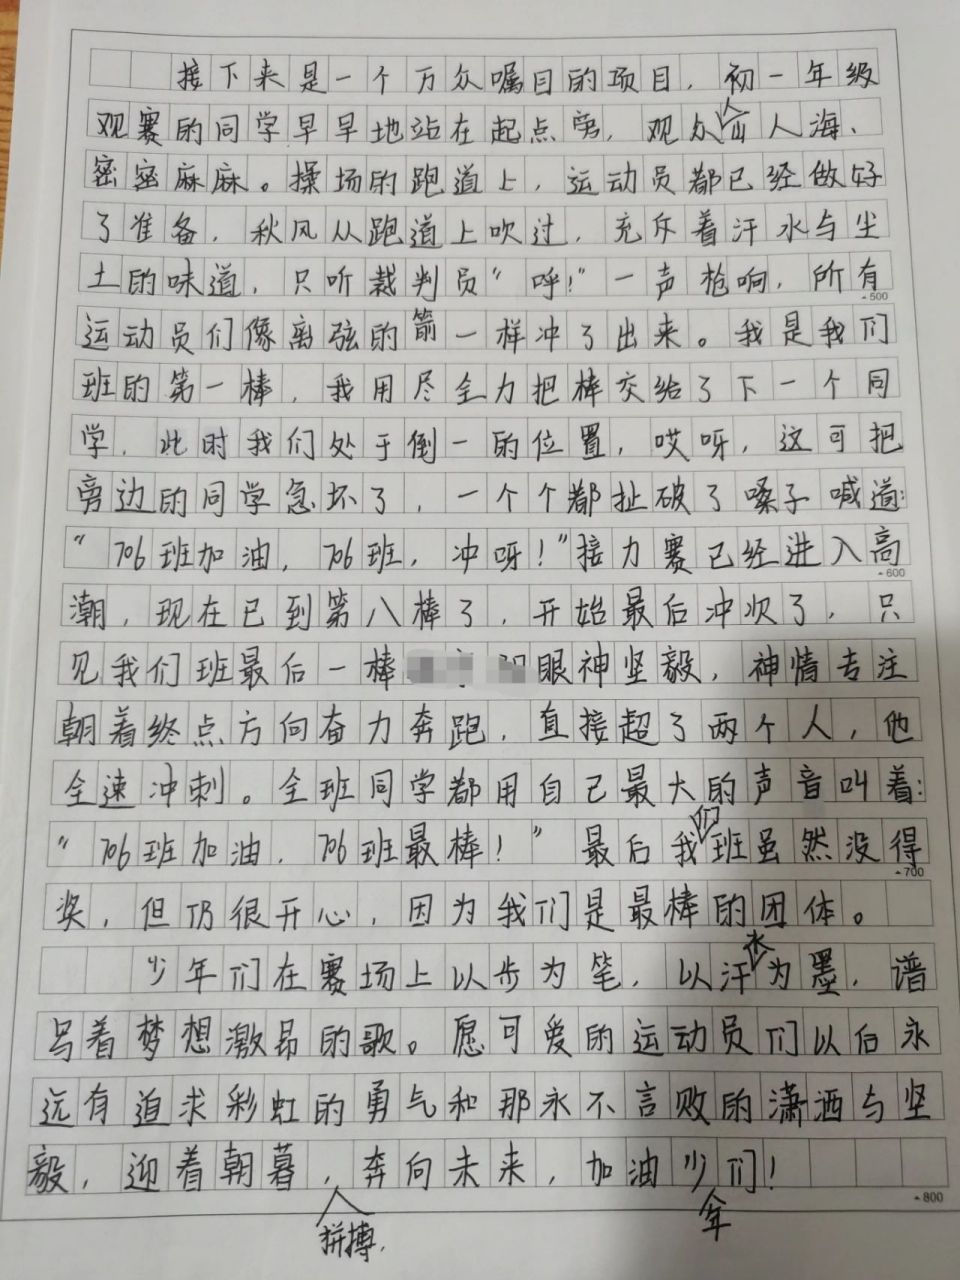 接下来是一个万众嘱目的项目，初一年级
观赛的同学早早地站在起点旁，观众人山人海、
密密麻麻。操场的跑道上，运动员都已经做好
了准备，秋风从跑道上吹过，充斥着汗水与尘
土的味道，只听裁判员“呼！”一声枪响，所有
500
运动员们像离弦的箭一样冲了出来。我是我们
班的第一棒，我用尽全力把棒交给了下一个同
学，此时我们处于倒一的位置，哎呀，这可把
旁边的同学急坏了，一个个都扯破了嗓子喊道：
“706班加油，706班，冲呀！”接力赛已经进入高
600
潮，现在已到第八棒了，开始最后冲次了，只
见我们班最后一棒眼神坚毅，神情专注
朝着终点方向奋力奔跑，直接超了两个人，他
全速冲刺。全班同学都用自己最大的声音叫着：
“706班加油，706班最棒！”最后我们班虽然没得
700
奖，但仍很开心，因为我们是最棒的团体。
少年们在赛场上以步为笔，以汗水为墨，谱
写着梦想激昂的歌。愿可爱的运动员们以后永
远有追求彩虹的勇气和那永不言败的潇洒与坚
毅，迎着朝暮，拼搏，奔向未来，加油少年们！
800